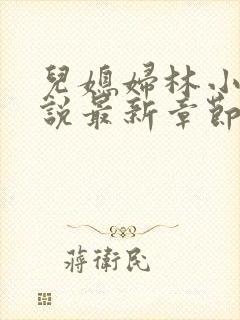 兒媳婦林小
說最新章節
蔣衛民